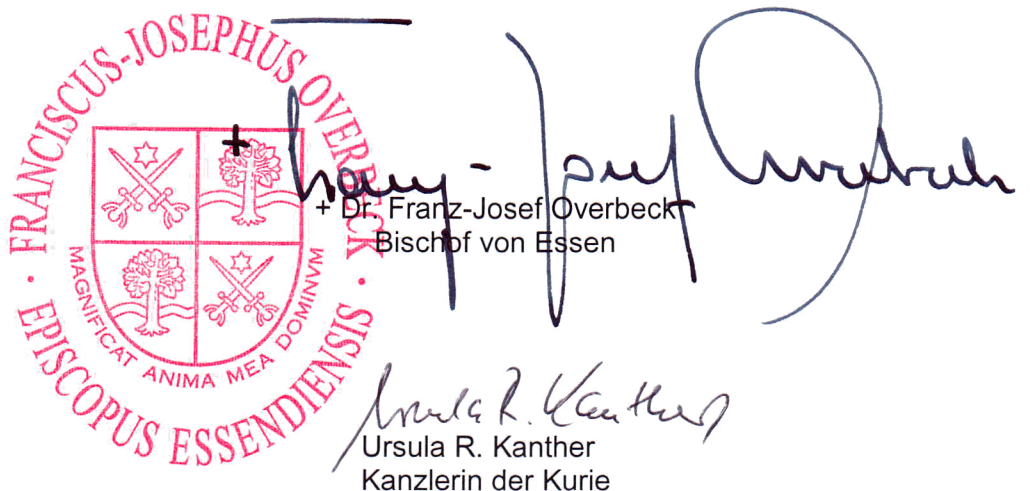 FRANCISCUS-JOSEPHUS OVERBECK
· EPISCOPUS ESSENDIENSIS ·
MAGNIFICAT ANIMA MEA DOMINVM
+ Franz-Josef Overbeck
+ Dr. Franz-Josef Overbeck
Bischof von Essen
Ursula R. Kanther
Ursula R. Kanther
Kanzlerin der Kurie